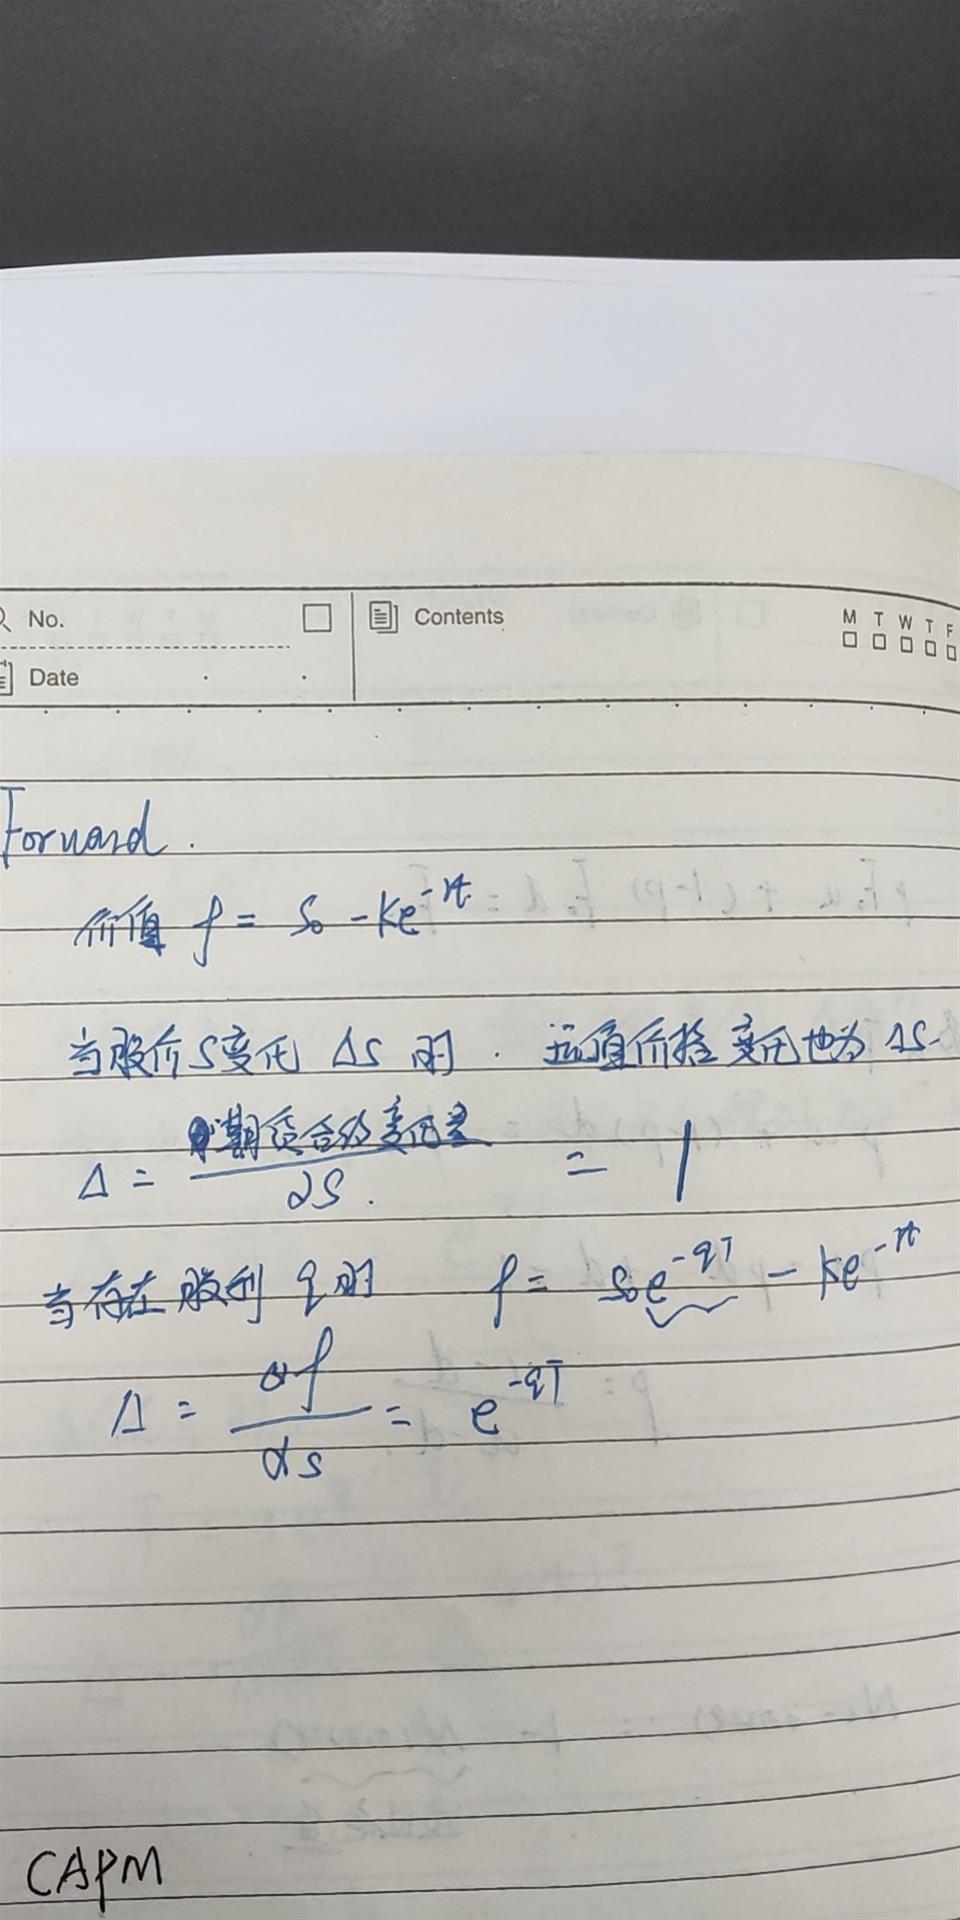 No. Contents M T W T F
Date
Forward.
价值 f = S₀ - Ke^{-rt}
当股价S变化 ΔS 时. 远期价格变化也为 ΔS.
Δ = 期货合约变化 / ∂S. = 1
当存在股利 q 时 f = S₀e^{-qT} - Ke^{-rt}
Δ = ∂f / ∂s = e^{-qT}
CAPM